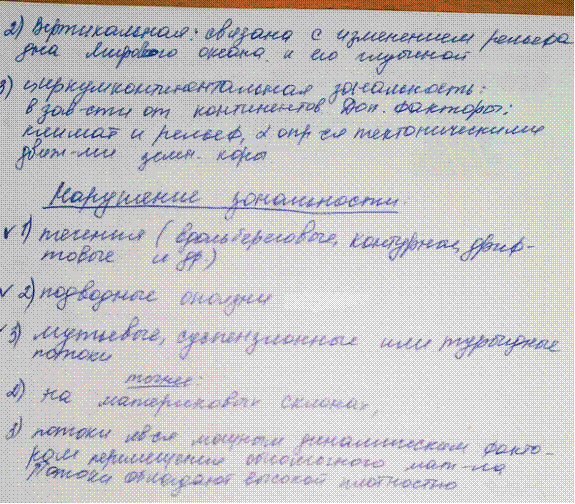 2) Вертикальная: связана с изменением рельефа
дна Мирового океана и его глубиной
3) циркумконтинентальная зональность:
в зав-сти от континентов. Доп. факторы:
климат и рельеф, опр-ся тектоническими
движ-ми земн. коры
Нарушение зональности.
1) течения (вдольбереговые, контурные, дриф-
товые и др)
2) подводные оползни
3) мутьевые, суспензионные или турбидные
потоки
точнее:
2) на материковых склонах,
3) потоки явл-ся мощным динамическим факто-
ром перемещения обломочного мат-ла
Потоки обладают высокой плотностью